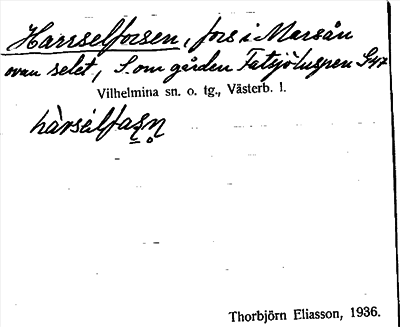 Harrselforsen, fors i Mersån
ovan selet, S. om gården Fatsjöluspen S47
Vilhelmina sn. o. tg., Västerb. l.
Thorbjörn Eliasson, 1936.